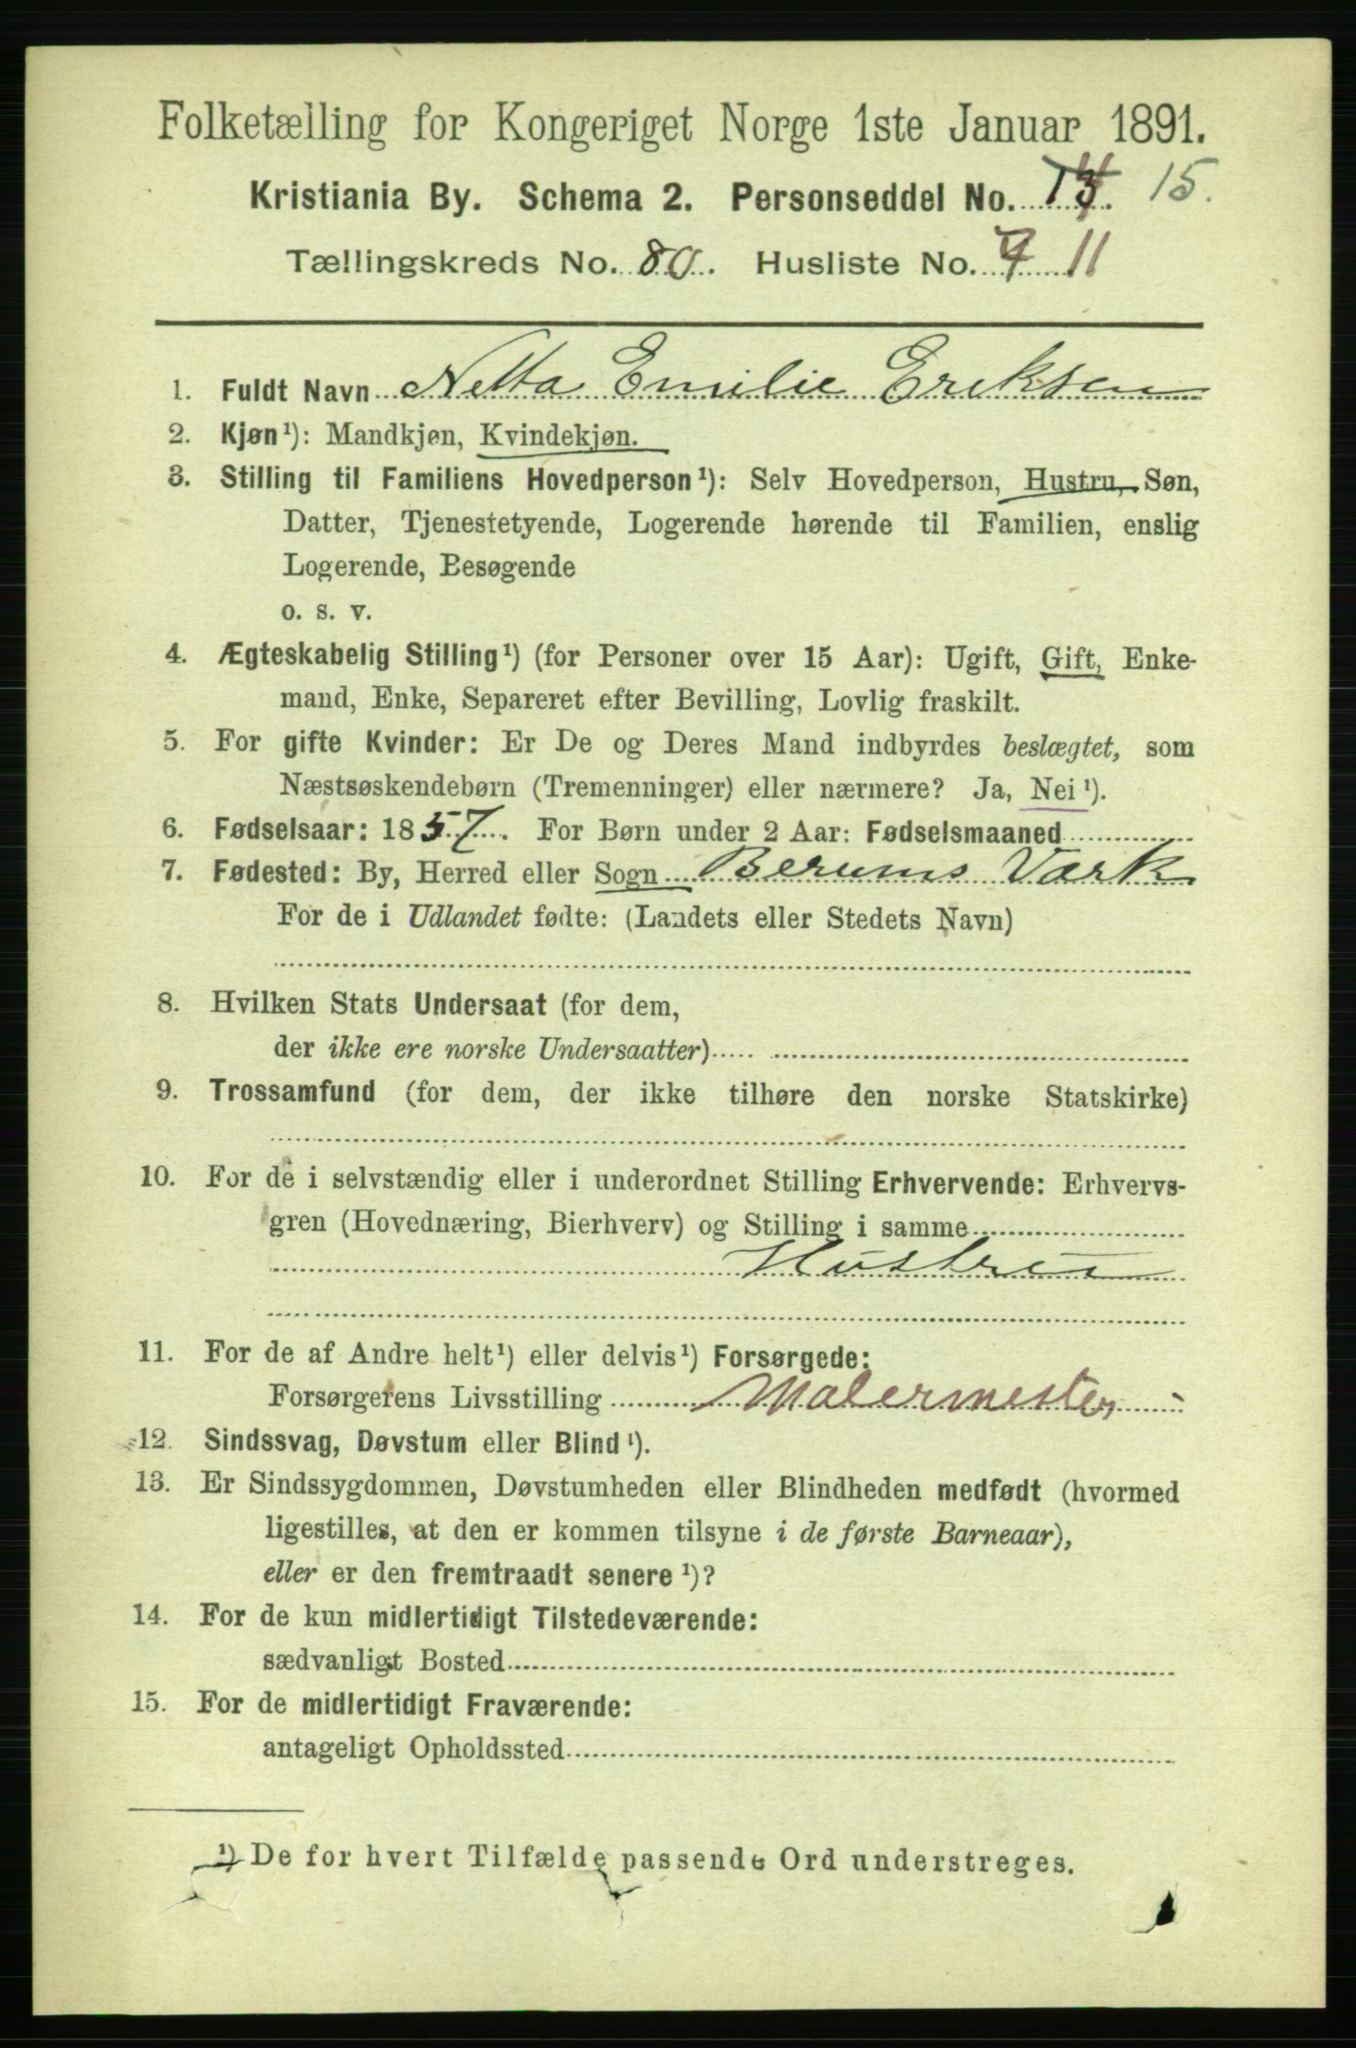 Folketælling for Kongeriget Norge 1ste Januar 1891.
Kristiania By. Schema 2. Personseddel No. 15.
Tællingskreds No. 80. Husliste No. 11
1. Fuldt Navn Netta Emilie Eriksen
2. Kjøn¹): Mandkjøn, Kvindekjøn.
3. Stilling til Familiens Hovedperson¹): Selv Hovedperson, Hustru, Søn,
Datter, Tjenestetyende, Logerende hørende til Familien, enslig
Logerende, Besøgende
o. s. v.
4. Ægteskabelig Stilling¹) (for Personer over 15 Aar): Ugift, Gift, Enke-
mand, Enke, Separeret efter Bevilling, Lovlig fraskilt.
5. For gifte Kvinder: Er De og Deres Mand indbyrdes beslægtet, som
Næstsøskendebørn (Tremenninger) eller nærmere? Ja, Nei¹).
6. Fødselsaar: 1857. For Børn under 2 Aar: Fødselsmaaned
7. Fødested: By, Herred eller Sogn Berums Værk
For de i Udlandet fødte: (Landets eller Stedets Navn)
8. Hvilken Stats Undersaat (for dem,
der ikke ere norske Undersaatter)
9. Trossamfund (for dem, der ikke tilhøre den norske Statskirke)
10. For de i selvstændig eller i underordnet Stilling Erhvervende: Erhvervs-
gren (Hovednæring, Bierhverv) og Stilling i samme
Hustru
11. For de af Andre helt¹) eller delvis¹) Forsørgede:
Forsørgerens Livsstilling Malermester
12. Sindssvag, Døvstum eller Blind¹).
13. Er Sindssygdommen, Døvstumheden eller Blindheden medfødt (hvormed
ligestilles, at den er kommen tilsyne i de første Barneaar),
eller er den fremtraadt senere¹)?
14. For de kun midlertidigt Tilstedeværende:
sædvanligt Bosted
15. For de midlertidigt Fraværende:
antageligt Opholdssted
¹) De for hvert Tilfælde passende Ord understreges.